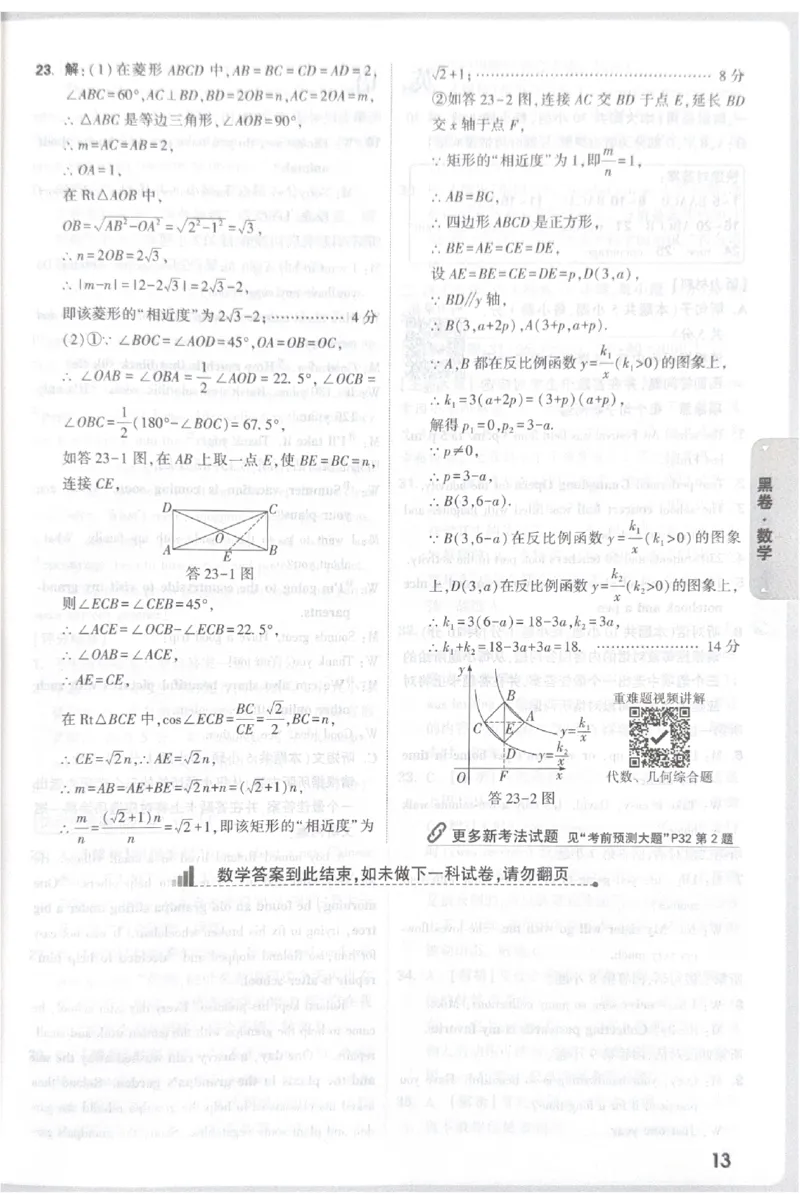 23. 解:(1)在菱形 ABCD 中,AB=BC=CD=AD=2,
∠ABC=60°,AC⊥BD,BD=2OB=n,AC=2OA=m,
∴ △ABC 是等边三角形,∠AOB=90°,
∴ m=AC=AB=2,
∴ OA=1,
在 Rt△AOB 中,
OB=√(AB²-OA²)=√(2²-1²)=√3,
∴ n=2OB=2√3,
∴ |m-n|=|2-2√3|=2√3-2,
即该菱形的“相近度”为 2√3-2;……………4 分
(2)①∵ ∠BOC=∠AOD=45°,OA=OB=OC,
∴ ∠OAB=∠OBA=1/2∠AOD=22.5°,∠OCB=
∠OBC=1/2(180°-∠BOC)=67.5°,
如答 23-1 图,在 AB 上取一点 E,使 BE=BC=n,
连接 CE,
D C
O
A E B
答 23-1 图
则∠ECB=∠CEB=45°,
∴ ∠ACE=∠OCB-∠ECB=22.5°,
∴ ∠OAB=∠ACE,
∴ AE=CE,
在 Rt△BCE 中,cos∠ECB=BC/CE=√2/2,BC=n,
∴ CE=√2n,∴ AE=√2n,
∴ m=AB=AE+BE=√2n+n=(√2+1)n,
∴ m/n=(√2+1)n/n=√2+1,即该矩形的“相近度”为
√2+1;……………………………8 分
②如答 23-2 图,连接 AC 交 BD 于点 E,延长 BD
交 x 轴于点 F,
∵ 矩形的“相近度”为 1,即m/n=1,
∴ AB=BC,
∴ 四边形 ABCD 是正方形,
∴ BE=AE=CE=DE,
设 AE=BE=CE=DE=p,D(3,a),
∵ BD∥y 轴,
∴ B(3,a+2p),A(3+p,a+p).
∵ A,B 都在反比例函数 y=k₁/x(k₁>0)的图象上,
∴ k₁=3(a+2p)=(3+p)(a+p),
解得 p₁=0,p₂=3-a.
∵ p≠0,
∴ p=3-a,
∴ B(3,6-a).
∵ B(3,6-a)在反比例函数 y=k₁/x(k₁>0)的图象
上,D(3,a)在反比例函数 y=k₂/x(k₂>0)的图象上,
∴ k₁=3(6-a)=18-3a,k₂=3a,
∴ k₁+k₂=18-3a+3a=18. ………………14 分
y
B
C E A
y=k₁/x
D y=k₂/x
O F x
答 23-2 图
重难题视频讲解
代数、几何综合题
更多新考法试题 见“考前预测大题”P32 第 2 题
数学答案到此结束,如未做下一科试卷,请勿翻页
黑卷·数学
13